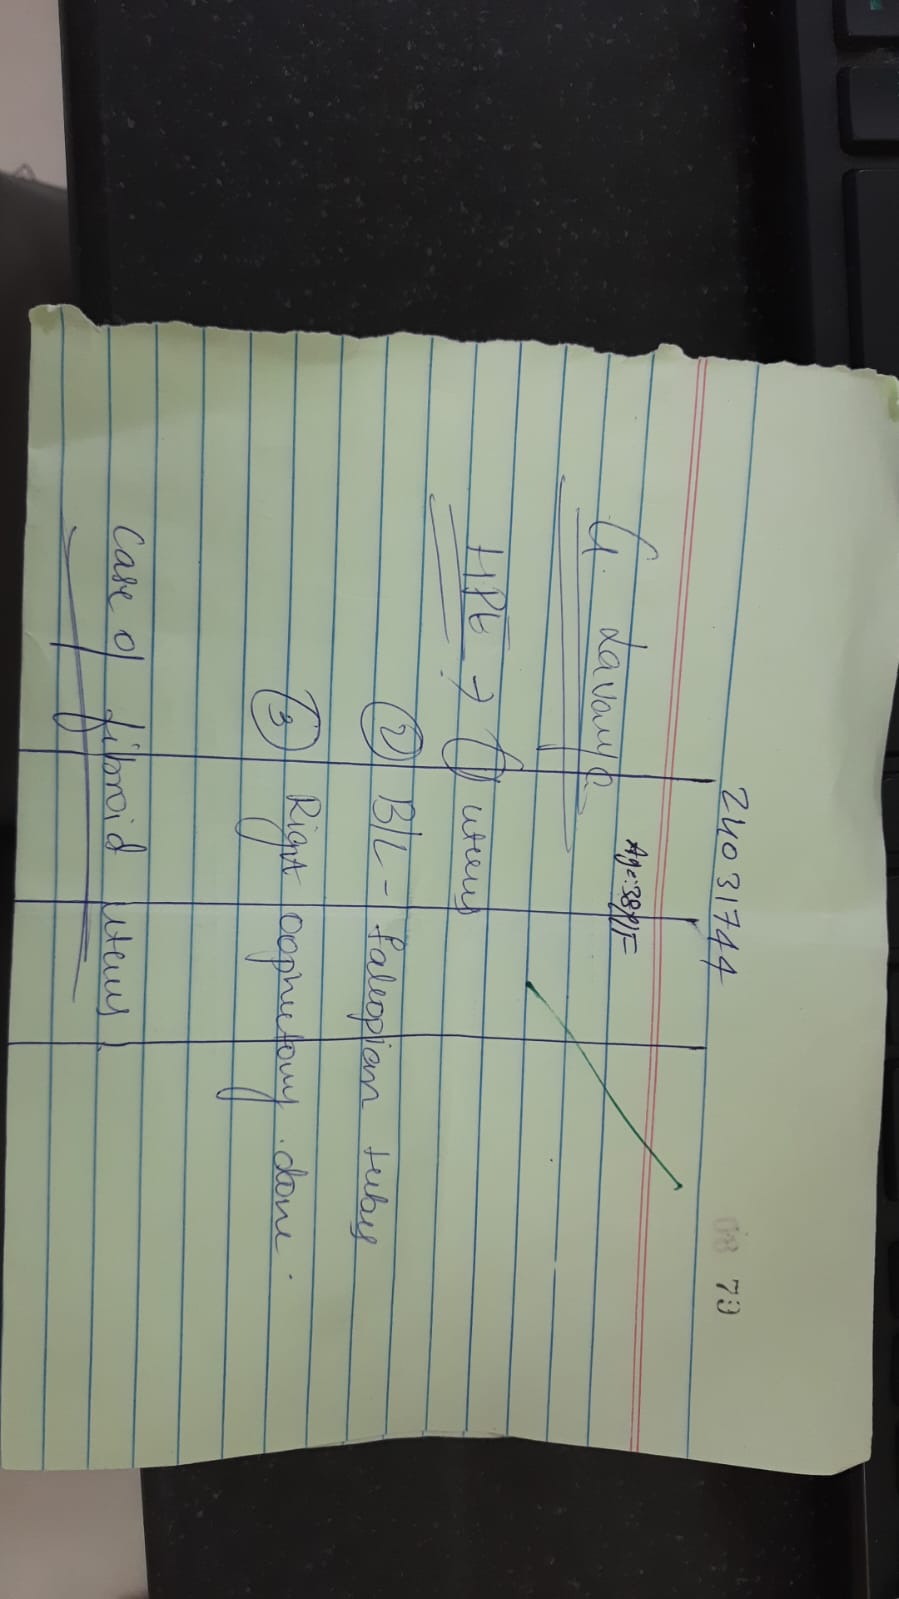 24031744
79
G. Lavanya Age: 38y/F
HPE → ① uterus
② B/L - faleopian tubes
③ Right oophretomy done.
Case of fibroid uterus